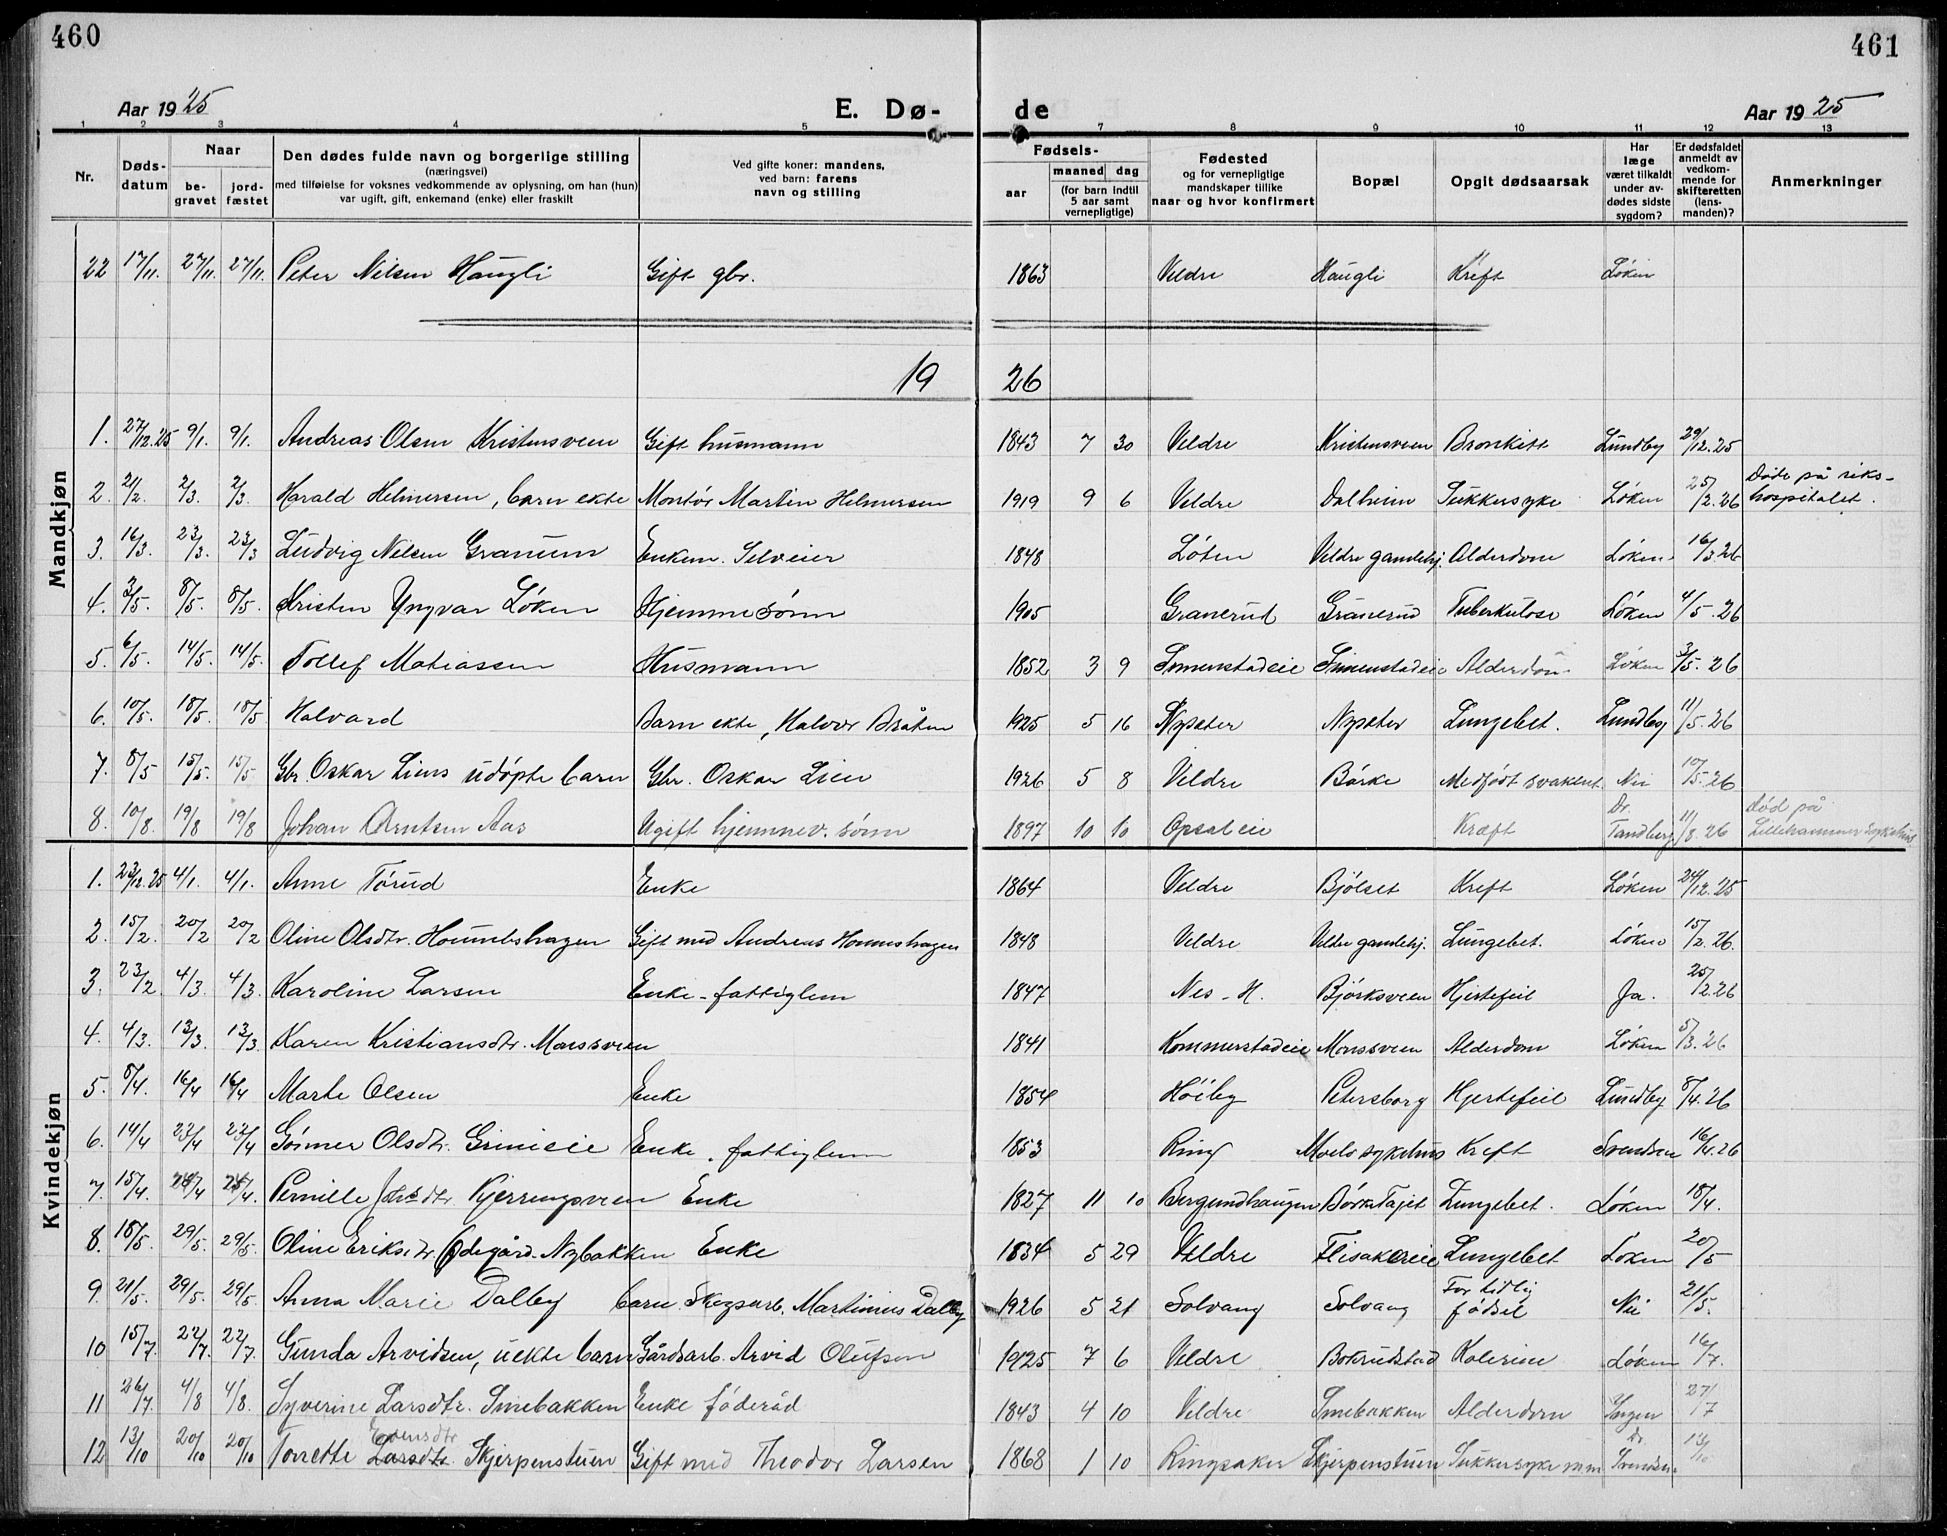 460
461
Aar 1925
E. Dø-
de
Aar 1925
1 2 3 4 5 7 8 9 10 11 12 13
Nr.
Døds-
datum
Naar
be-
gravet
jord-
fæstet
Den dødes fulde navn og borgerlige stilling
(næringsvei)
med tilføielse for voksnes vedkommende av oplysning, om han (hun)
var ugift, gift, enkemand (enke) eller fraskilt
Ved gifte koner: mandens,
ved barn: farens
navn og stilling
Fødsels-
aar
maaned dag
(for barn indtil
5 aar samt
vernepligtige)
Fødested
og for vernepligtige
mandskaper tillike
naar og hvor konfirmert
Bopæl
Opgit dødsaarsak
Har
læge
været tilkaldt
under av-
dødes sidste
sygdom?
Er dødsfaldet
anmeldt av
vedkom-
mende for
skifteretten
(lens-
manden)?
Anmerkninger
Mandkjøn
22 17/11. 27/11. 27/11. Peter Nilsen Haugli Gift gbr. 1863 Veldre Haugli Kreft Løken
19 26
1. 27/12.25 9/1. 9/1. Andreas Olsen Kristensveen Gift husmann 1843 7 30 Veldre Kristensveen Bronkitt Lundby 29/12.25
2. 21/2. 2/3. 2/3. Harald Helmersen, barn ekte Montør Martin Helmersen 1919 9 6 Veldre Dalheim Sukkersyke Løken 25/2.26 Døde på riks-
hospitalet.
3. 16/3. 23/3. 23/3 Ludvig Nilsen Granum Enkem. Selveier 1848 Løten Veldre gamlehj. Alderdom Løken 16/3.26
4. 3/5. 8/5. 8/5. Kristen Yngvar Løken Hjemme sønn 1905 Granerud Granerud Tuberkulose Løken 4/5.26
5. 6/5. 14/5. 14/5. Tollef Matiassen Husmann 1852 3 9 Simenstadeie Simenstadeie Alderdom Løken 3/5.26
6. 10/5. 18/5. 18/5 Halvard Barn ekte, Halvor Bråten 1925 5 16 Nyseter Nyseter Lungebet. Lundby 11/5.26
7. 8/5 15/5. 15/5 Gbr. Oskar Liens udøpte barn Gbr. Oskar Lien 1926 5 8 Veldre Børke Medfødt svakhet. Nei 10/5.26
8. 10/8. 19/8 19/8 Johan Arntsen Aas Ugift hjemmev. sønn 1897 10 10 Opsaleie Kræft Dr.
Tandberg 11/8.26 Død på
Lillehammer sykehus
Kvindekjøn
1. 23/12.25 4/1. 4/1. Anne Tørud Enke 1864 Veldre Bjølset Kreft Løken 24/12.25
2. 15/2. 20/2 20/2 Oline Olsdtr. Gift med Andreas 1848 Veldre Veldre gamlehj. Lungebet. Løken 15/2.26.
3. 23/2 4/3. 4/3. Karoline Larsen Enke - fattiglem 1847 Nes - H. Bjørksveen Hjertefeil Ja. 25/2.26
4. 4/3. 13/3. 13/3. Karen Kristiansdtr. Monssveen 1841 Kommerstadeie Monssveen Alderdom Løken 5/3.26
5. 8/4. 16/4 16/4 Marte Olsen Enke 1854 Høiby Petersborg Hjertefeil Lundby 8/4.26
6. 14/4 23/4 23/4 Gørner Olsdtr. Grimseie Enke. fattiglem 1853 Ring Moelv sykehus Kreft Svendsen 16/4.26
7. 15/4. 24/4 24/4. Pernille Kjerringsveen Enke 1827 11 10 Berglundhaugen Lungebet. Løken 18/4.
8. 18/5. 29/5. 29/5. Oline Eriksdtr. Ødegård Nybakken Enke 1834 5 29 Veldre Flisakereie Lungebet Løken 20/5
9. 21/5. 29/5. 29/5. Anna Marie Dalby barn. Skogsarb. Martinius Dalby 1926 5 21 Solvang Solvang For tidlig
fødsel Nei 21/5.
10 15/7. 22/7. 22/7. Gunda Arvidsen, uekte barn Gårdsarb. Arvid Olufsen 1925 7 6 Veldre Botrudstad Kolerine Løken 16/7.
11 26/7. 4/8 4/8. Syverine Larsdtr. Smebakken Enke føderåd 1843 4 10 Veldre Smebakken Alderdom Ingen 27/7
12 13/10 20/10 20/10 Torette Larsdtr. Evensdtr. Skjerpenstuen Gift med Theodor Larsen 1868 1 10 Ringsaker Skjerpenstuen Sukkersyke m.m. Dr.
Svendsen 13/10